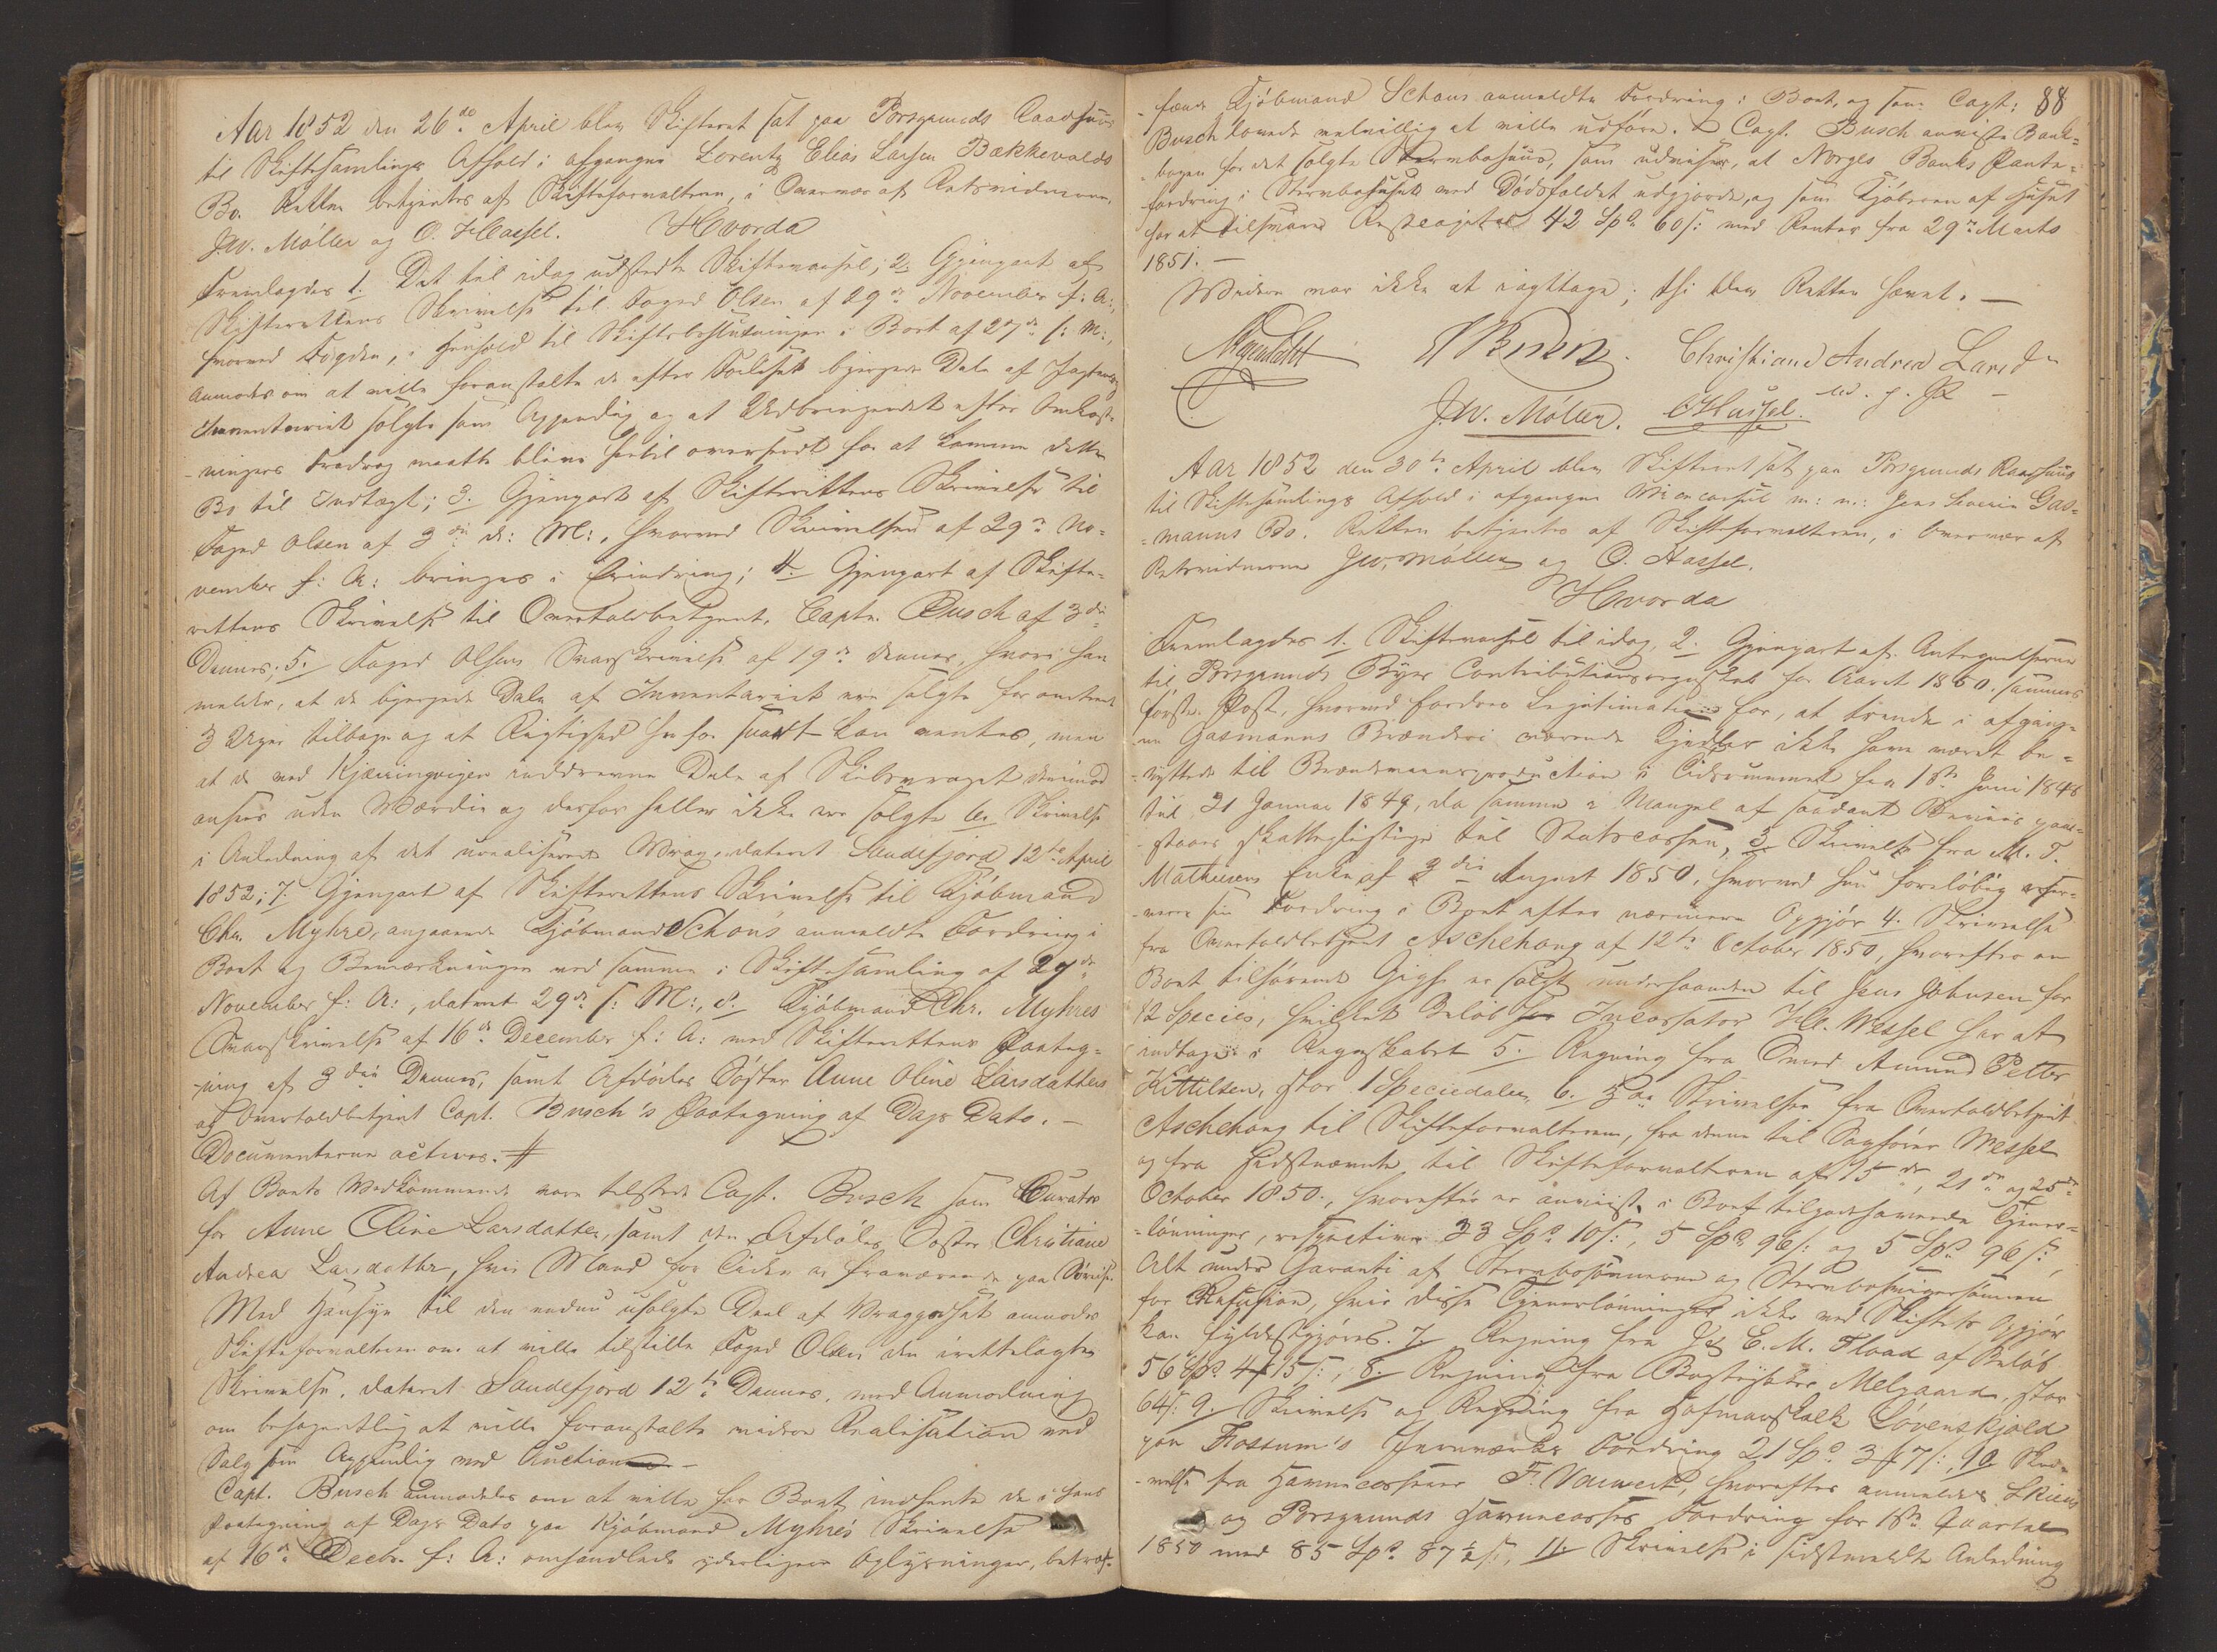 Aar 1852 den 26de April blev Skifteret sat paa Porsgrunds Raadhuus
til Skiftesamlings Afhold i afgangne Lorentz Elias Larsen Bækkevolds
Bo. Retten betjentes af Skifteforvalteren, i Overvær af Retsvidnerne
J.W. Möller og O. Hassel. Hvorda
Fremlagdes 1. Det til idag udstedte Skiftevarsel; 2. Gjenpart af
Skifterettens Skrivelse til Foged Olsen af 29de November f: A:,
hvorved Fogden, i Henhold til Skiftebeslutningen i Boet af 27de s: M:,
anmodes om at ville foranstalte de efter Forliset bjergede Dele af
Inventariet solgte som Appendix og at Udbringendet efter Omkost-
-ningers Fradrag maatte blive hertil oversendt for at komme dette
Bo til Indtægt; 3. Gjenpart af Skifterettens Skrivelse til
Foged Olsen af 3die d: M:, hvorved Skrivelsen af 29de No-
vember f: A: bringes i Erindring; 4. Gjenpart af Skifte-
rettens Skrivelse til Overtoldbetjent, Captn. Busch af 3die
Dennes; 5. Foged Olsens Svarskrivelse af 19de dennes, hvori han
melder, at de bjergede Dele af Inventariet ere solgte for omtrent
3 Uger tilbage og at Rigtighed herfor snart kan ventes, men
at de ved Kjærringvigen inddrevne Dele af Skibsvraget derimod
ansees uden Værdie og derfor heller ikke ere solgte 6. Skrivelse
i Anledning af det urealiserede Vrag, dateret Sandefjord 12te April
1852; 7. Gjenpart af Skifterettens Skrivelse til Kjöbmand
Chr. Myhre, angaaende Kjöbmand Schöns anmeldte Fordring i
Boet og Bemærkningen ved samme i Skiftesamling af 27de
November f: A:, dateret 29de s: M:, 8. Kjöbmand Chr. Myhres
Svarskrivelse af 16de December f: A: med Skifterettens Paateg-
-ning af 3die Dennes, samt Afdödes Söster Anne Oline Larsdatters
og Overtoldbetjent Capt. Busch's Paategning af Dags Dato. -
Documenterne acteres. #
Af Boets Vedkommende vare tilstede Capt. Busch som Curator
for Anne Oline Larsdatter, samt den Afdödes Söster Christiane
Andrea Larsdatter, hvis Mand for Tiden er fraværende paa Söreise.
Med Hensyn til den endnu usolgte Deel af Vraggodset anmodes
Skifteforvalteren om at ville tilstille Foged Olsen den irettelagte
Skrivelse, dateret Sandefjord 12te Dennes, med Anmodning
om behageligst at ville foranstalte videre Realisation ved
Salg som Appendix ved Auction -
Capt. Busch anmodedes om at ville for Boet indhente de i hans
Paategning af Dags Dato paa Kjöbmand Myhre's Skrivelse
af 16de Decbr. f: A: omhandlede yderligere Oplysninger, betræf-
88
-fende Kjöbmand Schöns anmeldte Fordring i Boet, og som Capt:
Busch lovede velvillig at ville udföre. Capt. Busch anviiste Bank-
-bogen for det solgte Sterbohuus, som udviser, at Norges Banks Pante-
fordring i Sterbohuset ved Dödsfaldet udgjorde, og som Kjöberen af Huset
har at tilsvare Restcapital 42 Spd 60 s: med Renter fra 29de Marts
1851. -
Videre var ikke at iagttage; thi blev Retten hævet. -
Christiane Andrea Larsd.
m. p. P.
J.W. Möller. O Hassel.
Aar 1852 den 30te April blev Skifteret sat paa Porsgrunds Raadhuus
til Skiftesamlings Afhold i afgangne Viceconsul m: m: Jens Severin Gas-
-manns Bo. Retten betjentes af Skifteforvalteren, i Overvær af
Retsvidnerne J.W. Möller og O. Hassel.
Hvorda
Fremlagdes 1. Skiftevarsel til idag, 2. Gjenpart af Antegnelserne
til Porsgrunds Byes Contributionsregnskab for Aaret 1850. sammes
förste Post, hvorved fordres Legitimation for, at tvende i afgang-
ne Gasmanns Brænderi værende Kjedler ikke have været be-
-nyttede til Brændeviinsproduction i Tidsrummet fra 18de Juni 1848
til 31 Januar 1849, da samme i Mangel af saadant Beviis paa-
staaes skattepligtige til Statscassen, 3. Skrivelse fra M. T.
Mathiesens Enke, af 3die August 1850, hvorved hun forelöbig reser-
-verer sin Fordring i Boet efter nærmere Opgjör 4. Skrivelse
fra Overtoldbetjent Aschehoug af 12te October 1850, hvorefter en
Boet tilhörende Gigh er solgt underhaanden til Jens Johnsen for
12 Species, hvilket Belöb Incassator Hr. Wessel har at
indtage i Regnskabet 5. Regning fra Smed Amund Petter
Kittilsen, stor 1 Speciedaler, 6. 3de Skrivelser fra Overtoldbetjent
Aschehoug til Skifteforvalteren, fra denne til Sagförer Wessel
og fra Sidstnævnte til Skifteforvalteren af 15de, 21de og 25de
October 1850., hvorefter er anviist, i Boet tilgodehavende Tjener-
-lönninger, respective 33 Spd 10 s:, 5 Spd 96 s: og 5 Spd 96 s:,
Alt under Garanti af Sterbosönnerne og Sterbosvigersönnen
for Refusion, hvis disse Tjenerlönninger ikke ved Skiftets Opgjör
kan fyldestgjöres. 7. Regning fra E. M. Flood af Belöb
56 Spd 4 # 15 s:, 8. Regning fra Bogtrykker Melgaard, stor
64 s: 9. Skrivelse og Regning fra Hofmarskalk Lövenskjold
paa Fossum's Jernværks Fordring 21 Spd 3 # 7 s:, 10. Skri-
-velse fra Havnecasserer F. Vauvert, hvorefter anmeldes Skiens
og Porsgrunds Havnecasses Fordring for 1ste Qvartal
1850 med 85 Spd 87½ s:, 11. Skrivelse i sidstmeldte Anledning